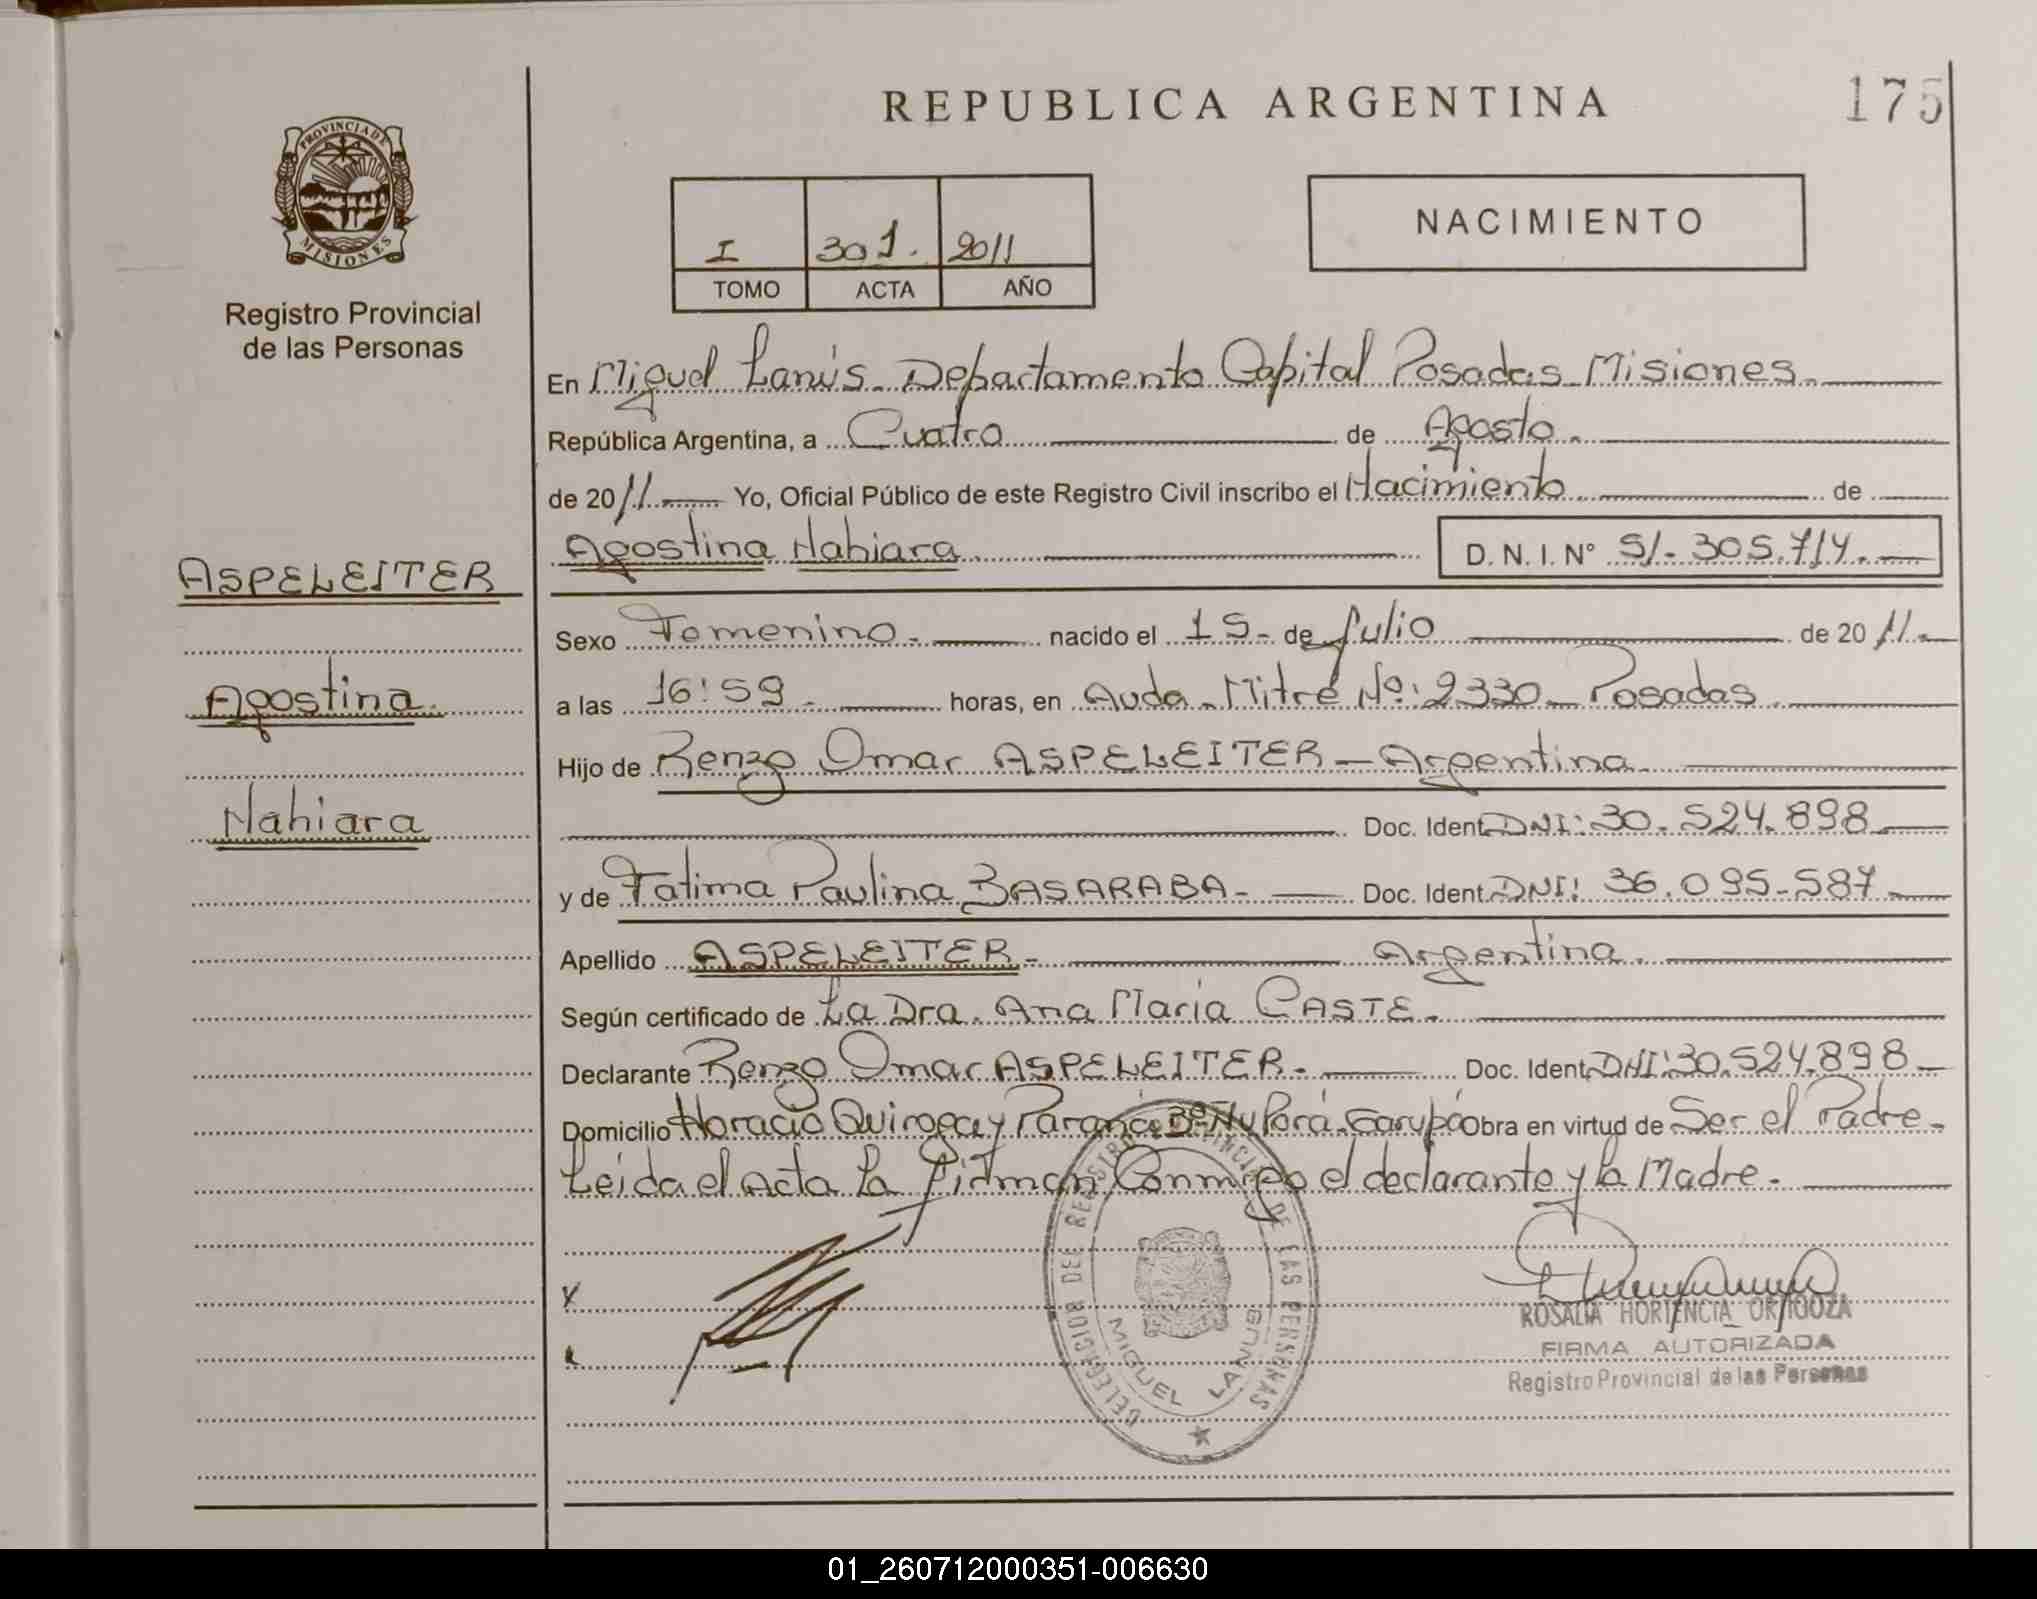 REPUBLICA ARGENTINA
175
PROVINCIA DE
MISIONES
Registro Provincial
de las Personas
I 301. 2011
TOMO ACTA AÑO
NACIMIENTO
En Miguel Lanús. Departamento Capital Posadas Misiones.
República Argentina, a Cuatro de Agosto.
de 2011. Yo, Oficial Público de este Registro Civil inscribo el Nacimiento de
Agostina Nahiara. D. N. I. Nº S/- 305.714.
ASPELEITER
Agostina.
Nahiara
Sexo Femenino.- nacido el 15- de Julio de 2011.
a las 16:59.- horas, en Avda. Mitre Nº: 2330- Posadas.
Hijo de Renzo Omar ASPELEITER - Argentina.
Doc. Ident. DNI: 30.524.898
y de Fatima Paulina BASARABA- Doc. Ident. DNI: 36.095.587
Apellido ASPELEITER- Argentina.
Según certificado de La Dra. Ana Maria CASTE.
Declarante Renzo Omar ASPELEITER. Doc. Ident. DNI: 30.524.898
Domicilio Horacio Quiroga y Parana Bº Ñu Porá. Garupá Obra en virtud de Ser el Padre.
Leida el Acta La firman Conmigo el declarante y la Madre.
DELEGACION DEL REGISTRO PROVINCIAL DE LAS PERSONAS
MIGUEL LANUS
ROSALIA HORTENCIA
FIRMA AUTORIZADA
Registro Provincial de las Personas
01_260712000351-006630